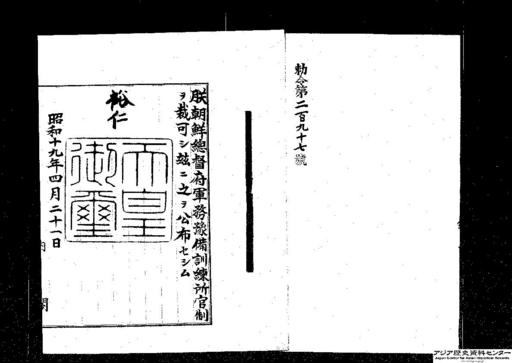 勅令第二百九十七號
朕朝鮮總督府軍務豫備訓練所官制
ヲ裁可シ玆ニ之ヲ公布セシム
裕仁
天皇御璽
昭和十九年四月二十一日
内閣
アジア歴史資料センター
Japan Center for Asian Historical Records